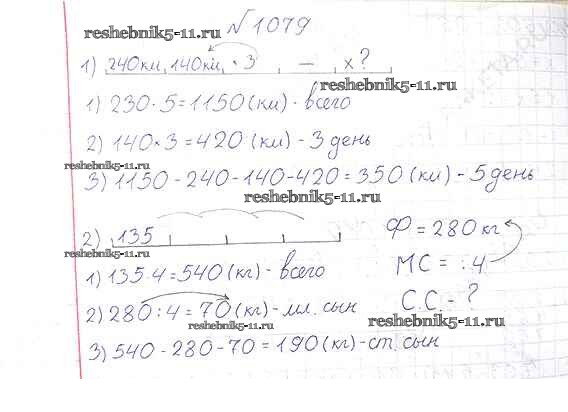 №1079
reshebnik5-11.ru
1) 240км, 140км, ·3 — х?
reshebnik5-11.ru
1) 230·5=1150(км)- всего
2) 140×3=420(км)-3 день
reshebnik5-11.ru
3) 1150-240-140-420=350(км)-5 день
reshebnik5-11.ru
2) 135
Ф=280кг
reshebnik5-11.ru
МС= :4
1) 135·4=540(кг)- всего
С.С.-?
2) 280:4=70(кг)-мл. сын
reshebnik5-11.ru
reshebnik5-11.ru
3) 540-280-70=190(кг)-ст. сын